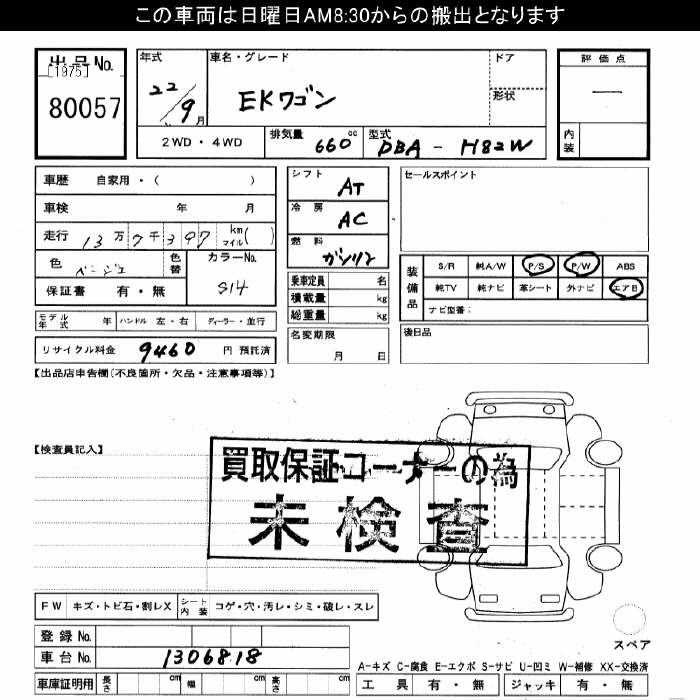 この車両は日曜日AM8:30からの搬出となります
出品No.
[1975]
80057
年式
22/9月
車名・グレード
EKワゴン
ドア
形状
評価点
—
内装
2WD・4WD
排気量 660cc
型式 DBA-H82W
車歴 自家用・( )
車検 年 月
走行 13万7千397 km マイル( )
色 ベージュ 色替
カラーNo. S14
保証書 有・無
シフト AT
冷房 AC
燃料 ガソリン
乗車定員 名
積載量 kg
総重量 kg
セールスポイント
装備品
S/R 純A/W P/S P/W ABS
純TV 純ナビ 革シート 外ナビ エアB
ナビ型番:
モデル年式 年 ハンドル 左・右 ディーラー・並行
名変期限 月 日
後日品
リサイクル料金 9460 円 預託済
【出品店申告欄(不良箇所・欠品・注意事項等)】
【検査員記入】
買取保証コーナーの為
未検査
FW キズ・トビ石・割レX シート内装 コゲ・穴・汚レ・シミ・破レ・スレ
スペア
登録No.
車台No. 1306818
A-キズ C-腐食 E-エクボ S-サビ U-凹ミ W-補修 XX-交換済
車庫証明用 長さ cm 幅 cm 高さ cm
工具 有・無 ジャッキ 有・無